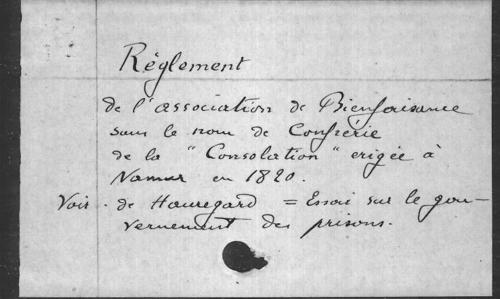 Réglement
de l'association de Bienfaisance
sous le nom de Confrérie
de la "Consolation" erigée à
Namur en 1820.
Voir - de Hauregard = Essai sur le gou-
vernement des prisons.